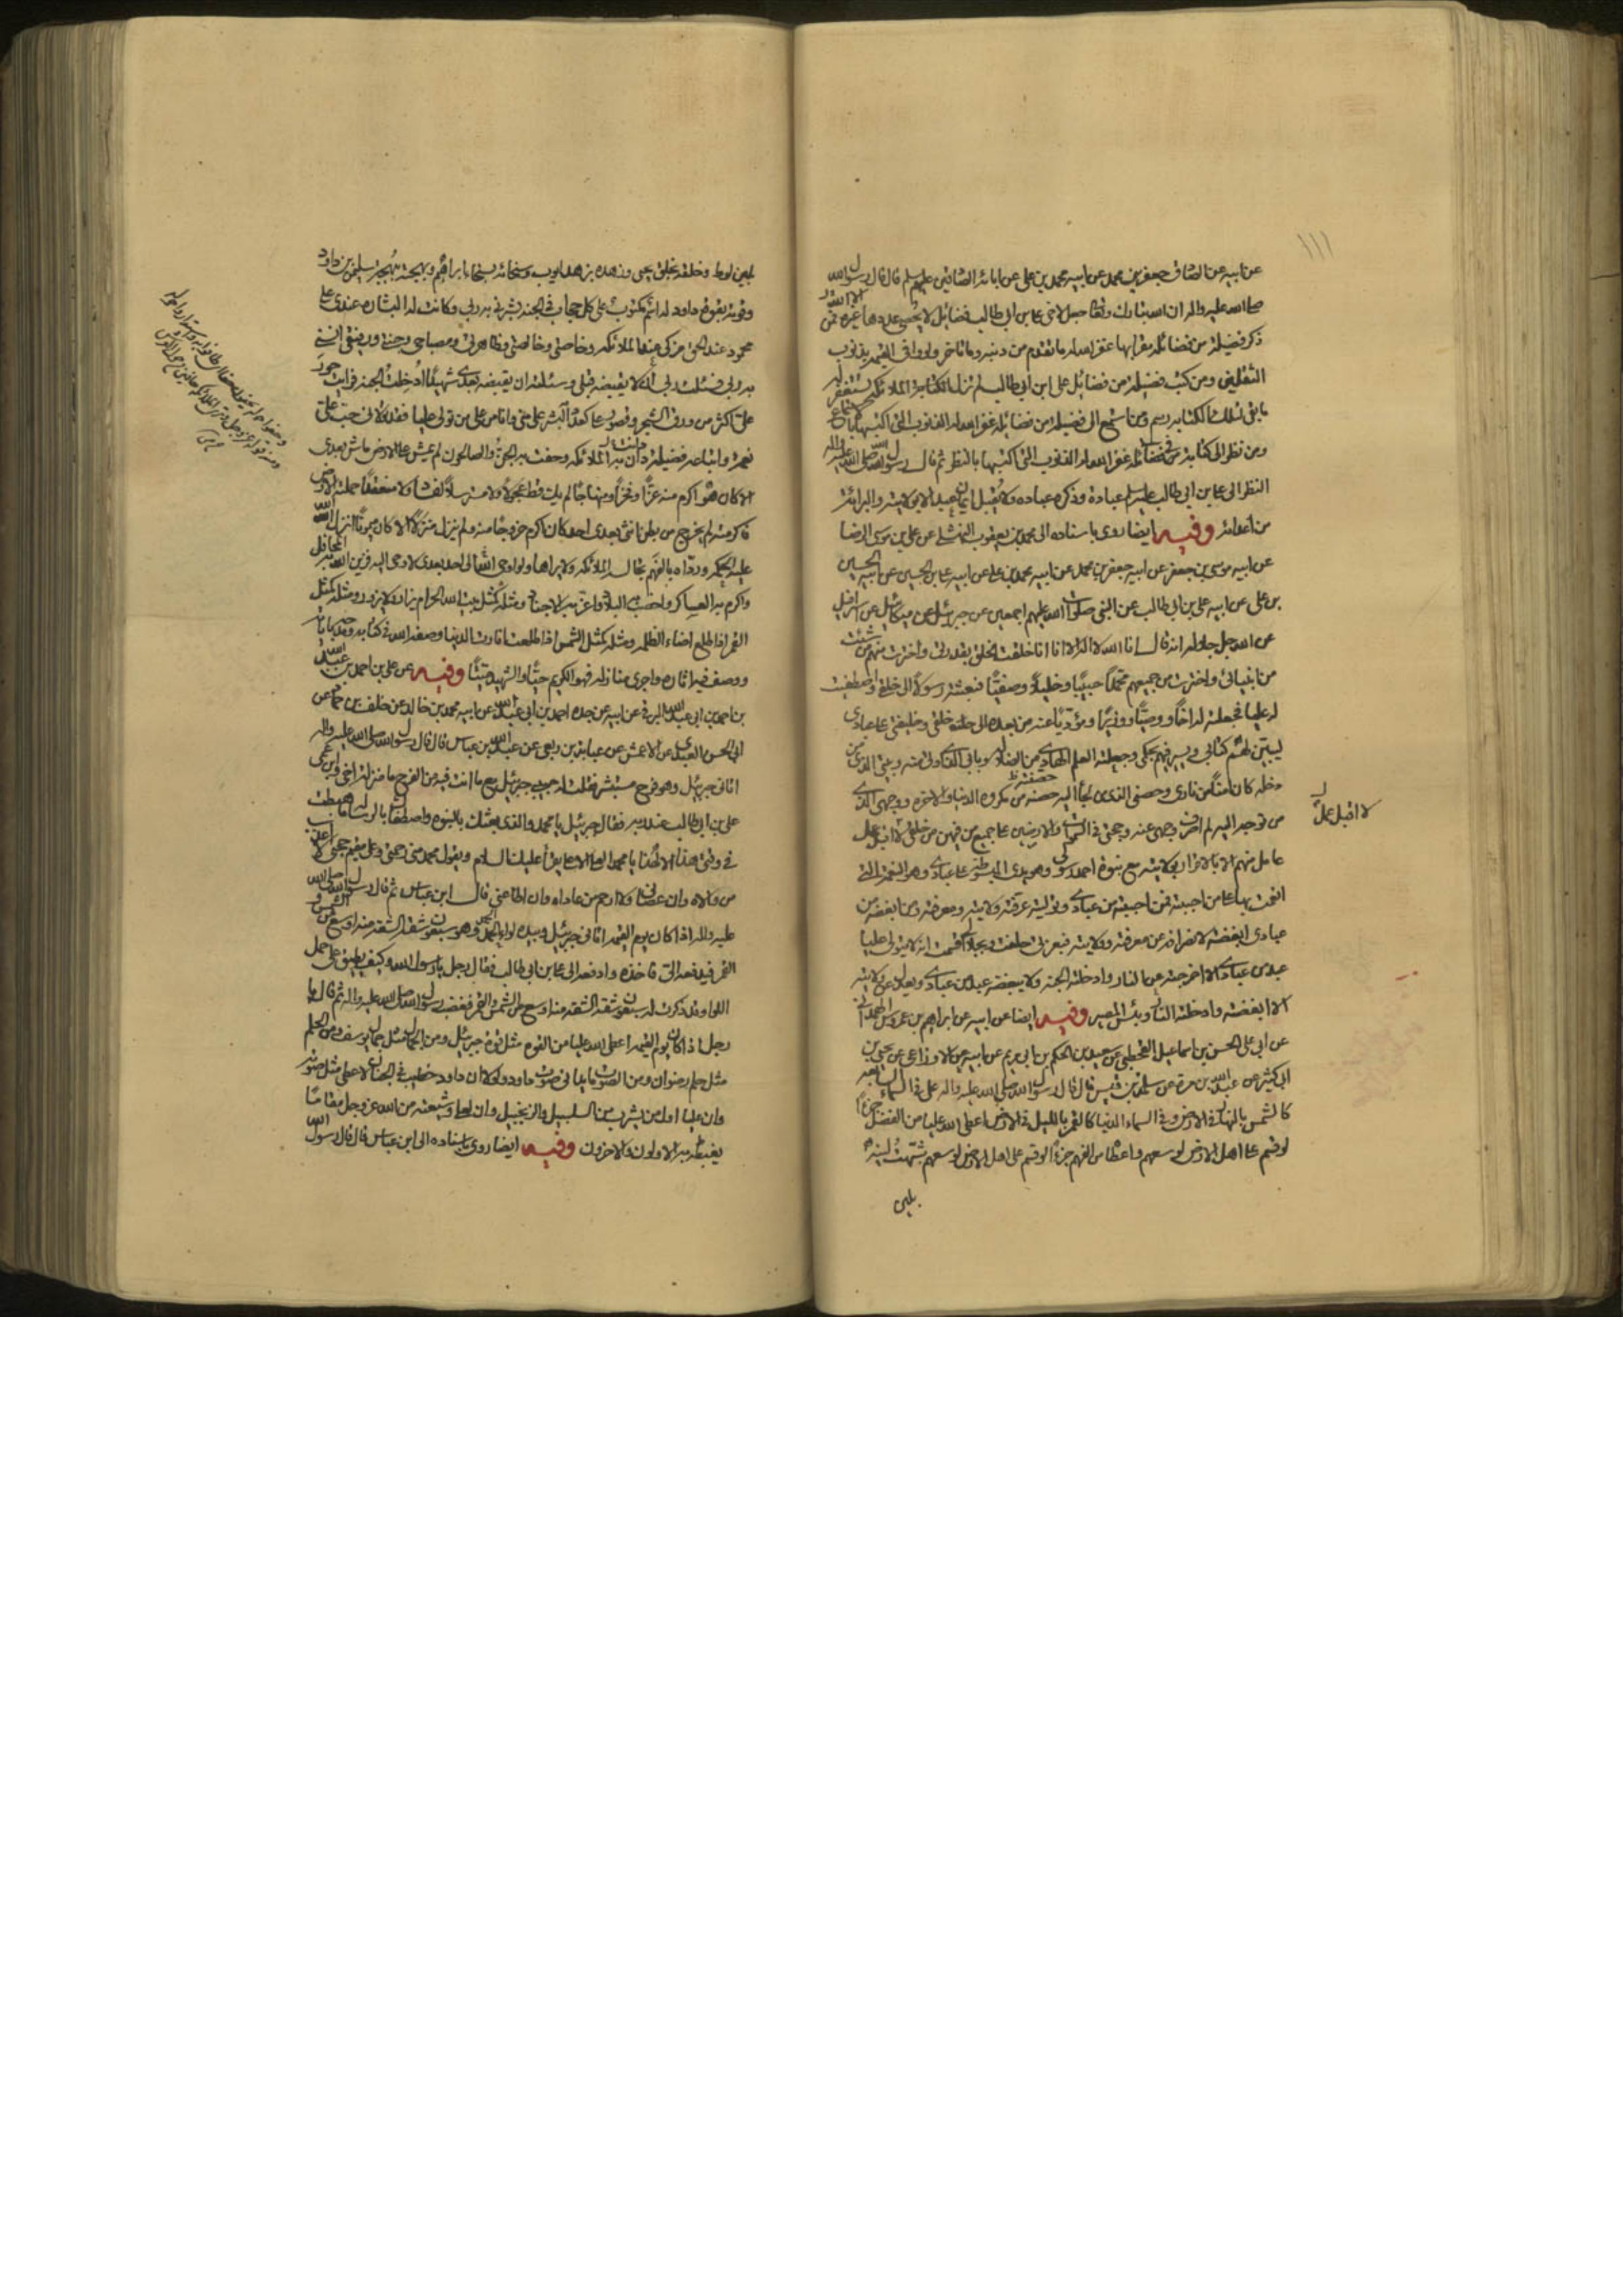 عن ابيه عن الصادق جعفر بن محمد عن ابيه محمد بن علي عن ابائه الصادقين عليهم السلم قال قال رسول الله
صلى الله عليه واله ان الله تبارك وتعا جعل لاخي علي بن ابي طالب فضائل لا يحصى عددها غيره فمن
ذكر فضيلة من فضائله مقرا بها غفر الله له ما تقدم من ذنبه وما تاخر ولو وافى القيمة بذنوب
الثقلين ومن كتب فضيلة من فضائل علي ابن ابي طالب لم تزل الملائكة تستغفر له
ما بقي لتلك الكتابه رسم ومن استمع الى فضيلة من فضائله غفر الله له الذنوب التي اكتسبها بالاستماع
ومن نظر الى كتابة من فضائله غفر الله له الذنوب التي اكتسبها بالنظر ثم قال رسول الله صلى الله عليه واله
النظر الى علي بن ابي طالب عليه السلم عبادة وذكره عباده ولا يقبل ايمان عبد الا بولايته والبرائة
من اعدائه وفيه ايضا روى باسناده الى محمد بن يعقوب النهشلي عن علي بن موسى الرضا
عن ابيه موسى بن جعفر عن ابيه جعفر بن محمد عن ابيه محمد بن علي عن ابيه علي بن الحسين عن ابيه الحسين
بن علي عن ابيه علي بن ابي طالب عن النبي صلوات الله عليهم اجمعين عن جبرئيل عن ميكائيل عن اسرافيل
عن الله جل جلاله انه قال انا الله لا اله الا انا خلقت الخلق بقدرتي واخترت منهم من شئت
من انبيائي واخترت من جميعهم محمدا حبيبا وخليلا وصفيا فبعثته رسولا الى خلقي واصطفيت
له عليا فجعلته له اخا ووصيا ووزيرا ومؤديا عنه من بعده الى خلقي وخليفتي على عبادي
ليبين لهم كتابي ويسير فيهم بحكمي وجعلته العلم الهادي من الضلالة وبابي الذي اوتى منه وبيتي الذي من
دخله كان امنا من ناري وحصني الذي من لجأ اليه حصنته من مكروه الدنيا والاخرة ووجهي الذي
من توجه اليه لم اصرف وجهي عنه وحجتي في السموات والارضين على جميع من فيهن من خلقي لا اقبل عمل
لا اقبل عمل
عامل منهم الا بالاقرار بولايته مع نبوة احمد رسولي وهو يدي المبسوطة على عبادي وهو النعمة التي
انعمت بها على من احببته فمن احببته من عبادي وتوليته عرفته ولايته ومعرفته ومن ابغضته من
عبادي ابغضته لانصرافه عن معرفته وولايته فبعزتي حلفت وبجلالي اقسمت انه لا يتولى عليا
عبد من عبادي الا زحزحته عن النار وادخلته الجنة ولا يبغضه عبد من عبادي ويعدل عن ولايته
الا ابغضته وادخلته النار وبئس المصير وفيه ايضا عن ابيه عن ابراهيم بن عروس الهمداني
عن ابي علي الحسن بن اسماعيل القحطبي عن سعيد بن الحكم بن ابي مريم عن ابيه عن الاوزاعي عن يحيى بن
ابي كثير عن عبد الله بن مرة عن سلمة بن قيس قال قال رسول الله صلى الله عليه واله علي في السماء السابعة
كالشمس بالنهار في الارض وفي السماء الدنيا كالقمر بالليل في الارض اعطى الله عليا من الفضل جزءا
لو قسم على اهل الارض لوسعهم واعطاه من الفهم جزءا لو قسم على اهل الارض لوسعهم شبهت لينه
بلين
بلين لوط وخلقه بخلق يحيى وزهده بزهد ايوب وسخائه بسخاء ابراهيم وبهجته ببهجة سليمان بن داود
وقوته بقوة داود له اسم مكتوب على كل حجاب في الجنة بشرني به ربي وكانت له البشارة عندي علي
محمود عند الحق مزكى عند الملائكة وخاصتي وخالصتي وظاهرتي ومصباحي وجنتي ورفيقي انسني
به ربي فسئلت ربي ان لا يقبضه قبلي وسئلته ان يقبضه بعدي شهيدا ادخلت الجنة فرايت حور
علي اكثر من ورق الشجر وقصور علي كعدد البشر علي مني وانا من علي من تولى عليا فقد تولاني حب علي
نعمة واتباعه فضيلة دان به الملائكة وحفت به الجن والصالحون لم يمش على الارض ماش بعدي
الا كان هو اكرم منه عزا وفخرا ومنهاجا لم يك قط عجولا ولا مسترسلا لفساد ولا متعقدا حملته الارض
فاكرمته لم يخرج من بطن انثى بعدي احد كان اكرم خروجا منه ولم ينزل منزلا الا كان ميمونا انزل الله
عليه الحكمة ورداه بالفهم تجالسه الملائكة ولا يراها ولو اوحي الى احد بعدي لاوحي اليه فزين الله به المحافل
واكرم به العساكر واخصب به البلاد واعز به الاجناد ومثله كمثل بيت الله الحرام يزار ولا يزور ومثله كمثل
القمر اذا طلع اضاء الظلمة ومثله كمثل الشمس اذا طلعت انارت الدنيا وصفه الله في كتابه ومدحه باياته
ووصف فيه اثاره واجرى منازله فهو الكريم حيا والشهيد ميتا وفيه عن علي بن احمد بن عبد الله
بن احمد بن ابي عبد الله البرقي عن ابيه عن جده احمد بن ابي عبد الله عن ابيه محمد بن خالد عن خلف بن حماد عن
ابي الحسن العبدي عن الاعمش عن عباية بن ربعي عن عبد الله بن عباس قال قال رسول الله صلى الله عليه واله
اتاني جبرئيل وهو فرح مستبشر فقلت له حبيبي جبرئيل مع ما انت فيه من الفرح ما منزلة اخي وابن عمي
علي بن ابي طالب عند ربه فقال جبرئيل يا محمد والذي بعثك بالنبوة واصطفاك بالرسالة ما هبطت
في وقتي هذا الا لهذا يا محمد العلي الاعلى يقرأ عليك السلام ويقول محمد نبي رحمتي وعلي مقيم حجتي لا اعذب
من والاه وان عصاني ولا ارحم من عاداه وان اطاعني قال ابن عباس ثم قال رسول الله صلى الله
عليه واله اذا كان يوم القيمة اتاني جبرئيل وبيده لواء الحمد وهو سبعون شقة الشقة منه اوسع من الشمس و
القمر فيدفعه الي فاخذه وادفعه الى علي بن ابي طالب فقال رجل يا رسول الله وكيف يطيق علي حمل
اللواء وقد ذكرت انه سبعون شقة الشقة منه اوسع من الشمس والقمر فغضب رسول الله صلى الله عليه واله ثم قال يا
رجل اذا كان يوم القيمة اعطى الله عليا من القوة مثل قوة جبرئيل ومن الجمال مثل جمال يوسف ومن الحلم
مثل حلم رضوان ومن الصوت ما يداني صوت داود ولولا ان داود خطيب في الجنان لاعطي مثل صوته
وان عليا اول من يشرب من السلسبيل والزنجبيل وان لعلي وشيعته من الله عز وجل مقاما
يغبطه به الاولون والاخرون وفيه ايضا روى باسناده الى ابن عباس قال قال رسول الله